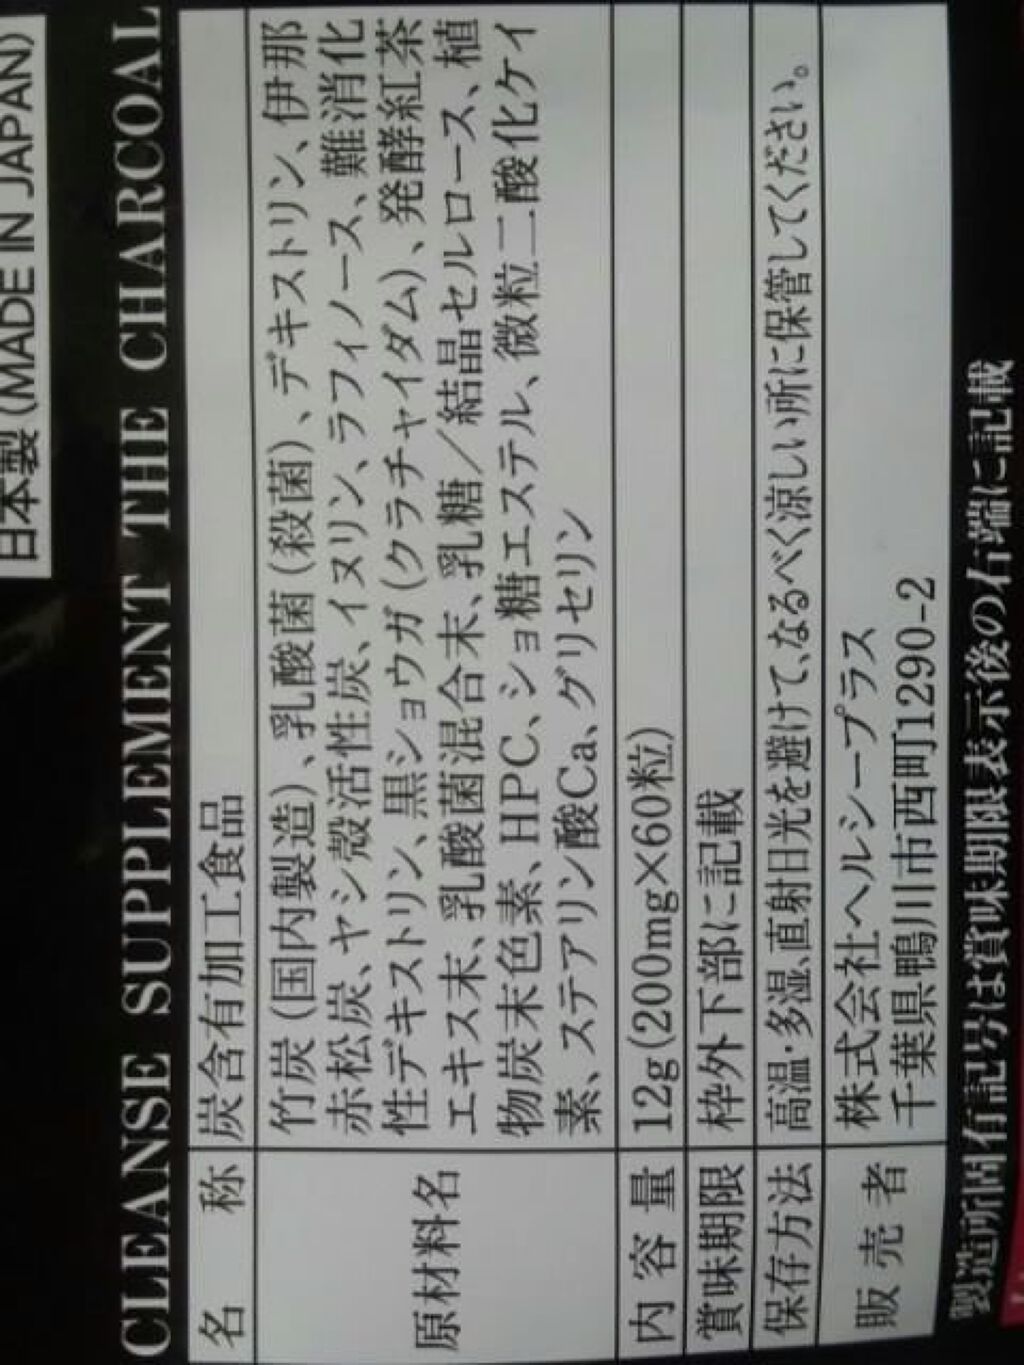 日本製(MADE IN JAPAN)
CLEANSE SUPPLEMENT THE CHARCOAL
名称 炭含有加工食品
原材料名 竹炭(国内製造)、乳酸菌(殺菌)、デキストリン、伊那
赤松炭、ヤシ殻活性炭、イヌリン、ラフィノース、難消化
性デキストリン、黒ショウガ(クラチャイダム)、発酵紅茶
エキス末、乳酸菌混合末、乳糖/結晶セルロース、植
物炭末色素、HPC、ショ糖エステル、微粒二酸化ケイ
素、ステアリン酸Ca、グリセリン
内容量 12g(200mg×60粒)
賞味期限 枠外下部に記載
保存方法 高温・多湿、直射日光を避けて、なるべく涼しい所に保管してください。
販売者 株式会社ヘルシープラス
千葉県鴨川市西町1290-2
製造所固有記号は賞味期限表示後の右端に記載